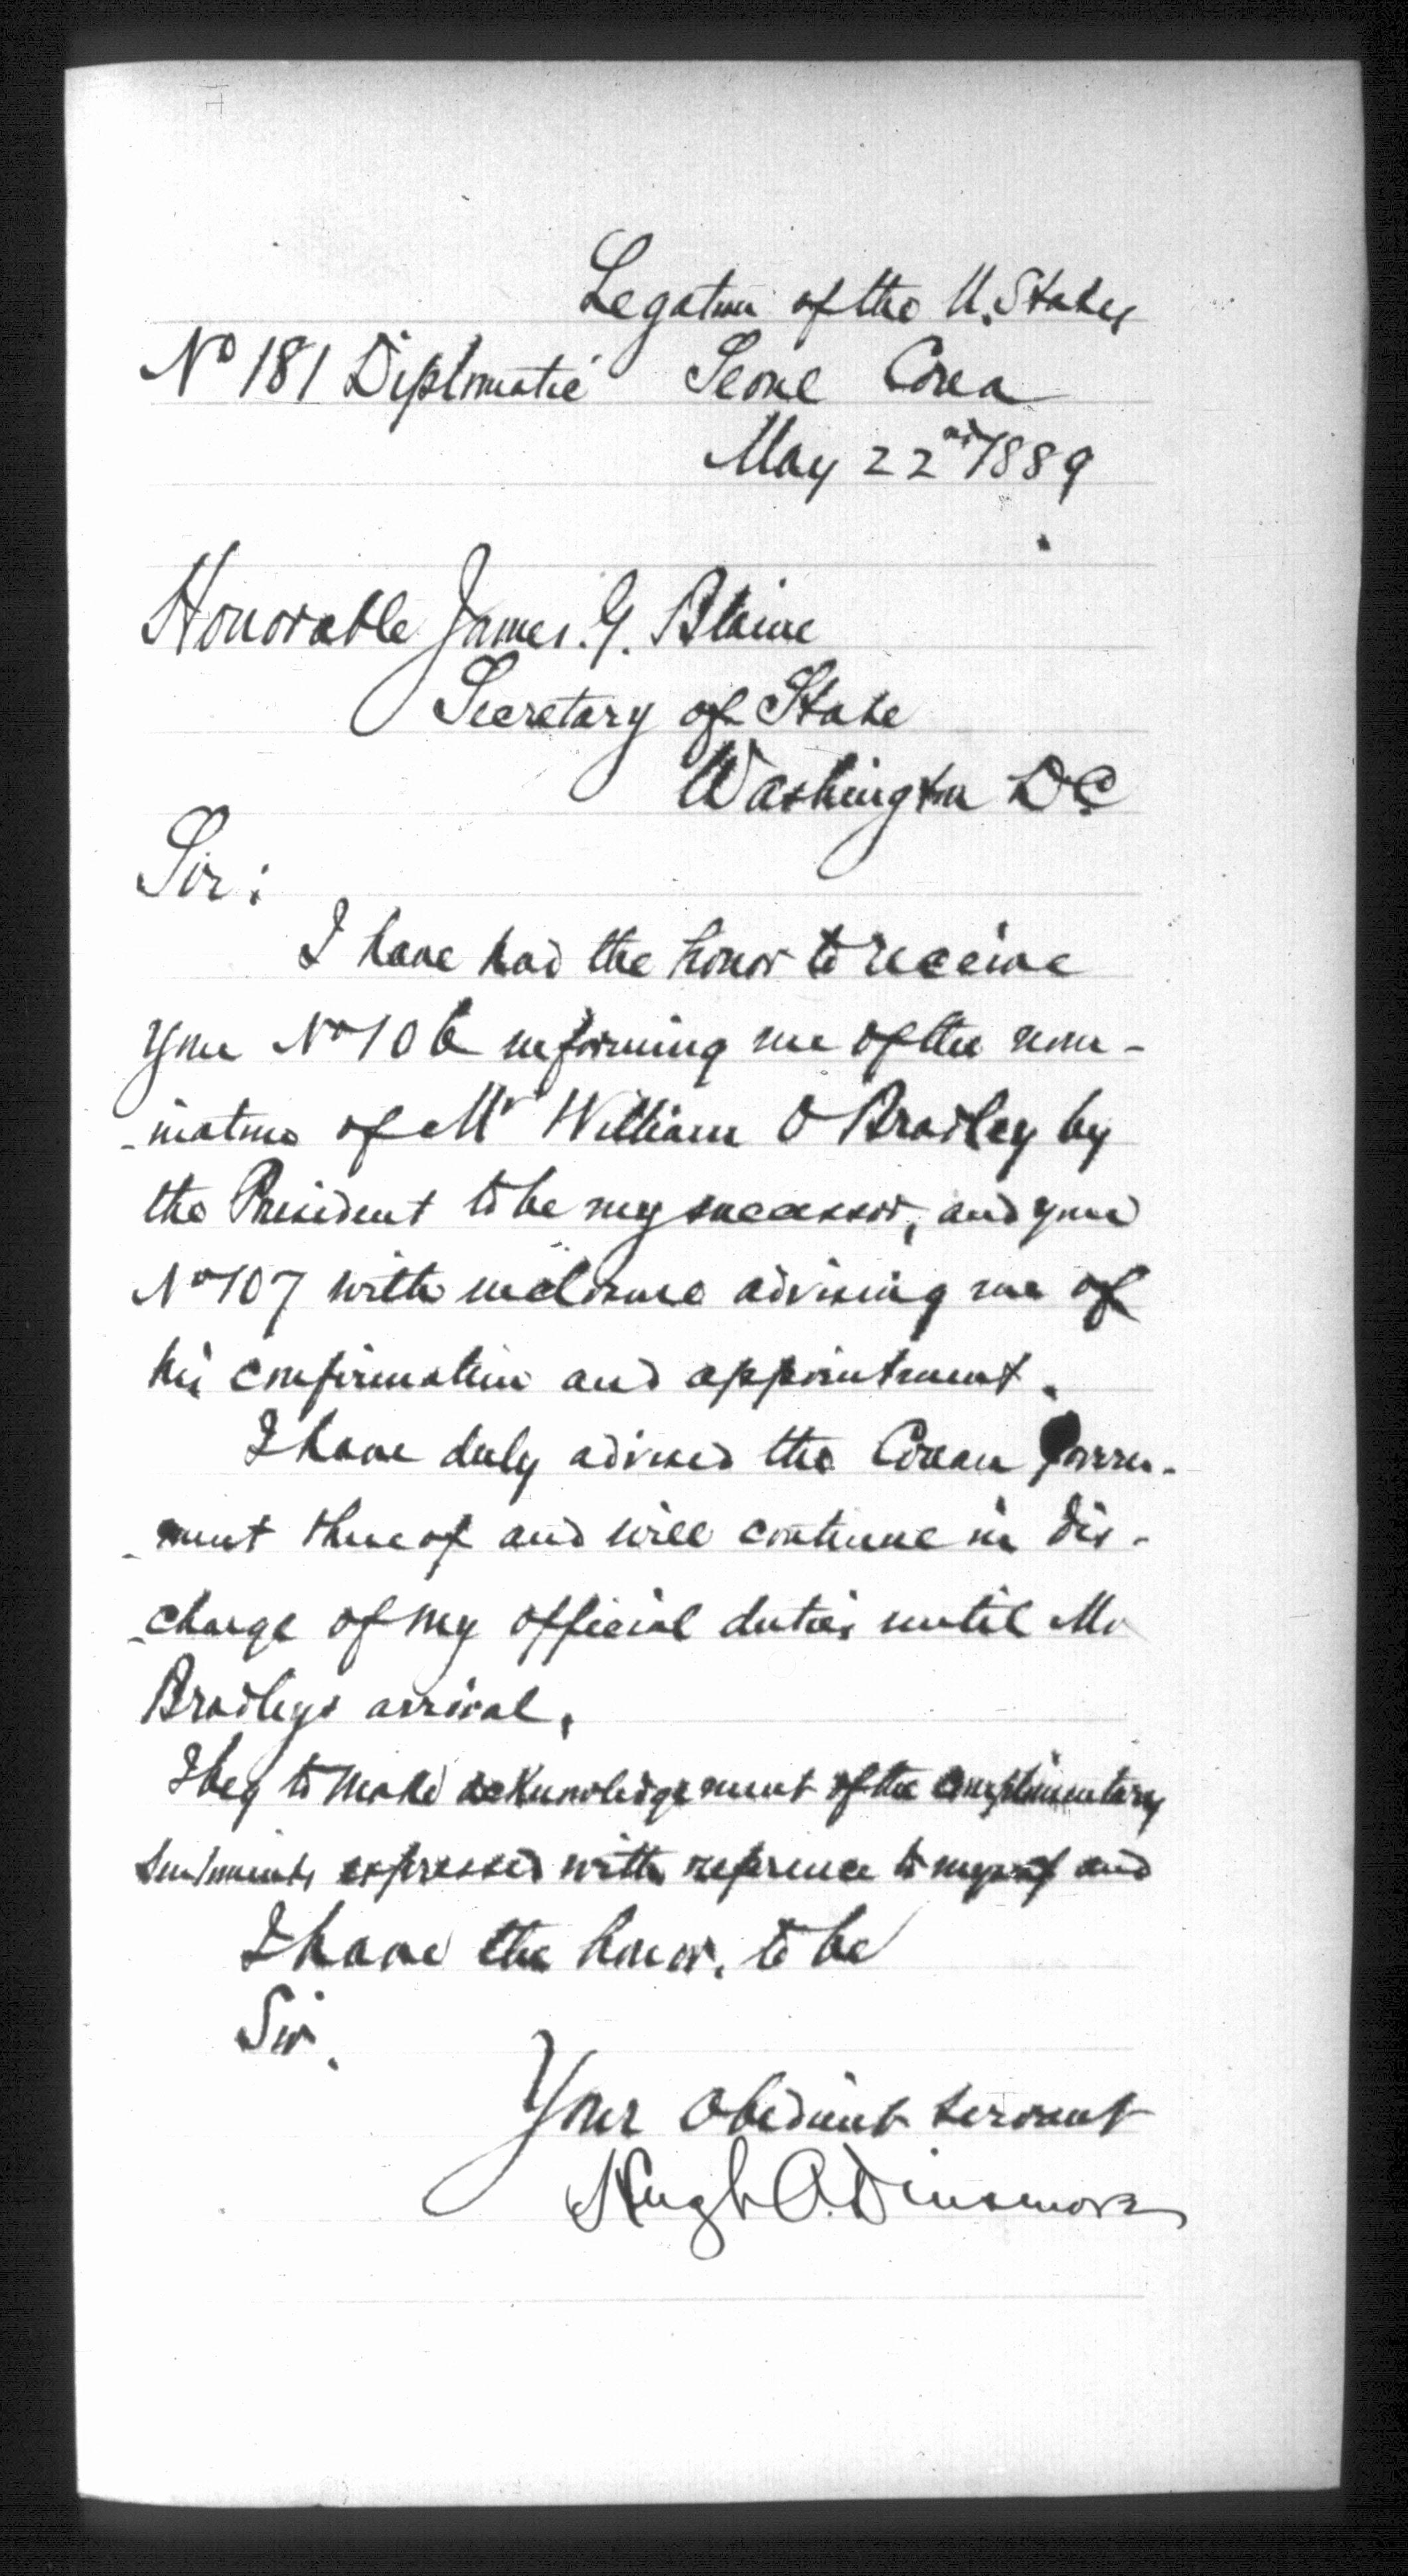 Legation of the U. States
No 181 Diplomatic Seoul Corea
May 22nd 1889
Honorable James. G. Blaine
Secretary of State
Washington D.C.
Sir:
I have had the honor to receive
your No 106 informing me of the nom-
-ination of Mr William O Bradley by
the President to be my successor, and your
No 107 with inclosure advising me of
his confirmation and appointment.
I have duly advised the Corean Govern-
-ment thereof and will continue in dis-
-charge of my official duties until Mr
Bradleys arrival.
I beg to make acknowledgement of the complimentary
sentiments expressed with reference to myself and
I have the honor. to be
Sir.
Your obedient servant
Hugh A. Dinsmore